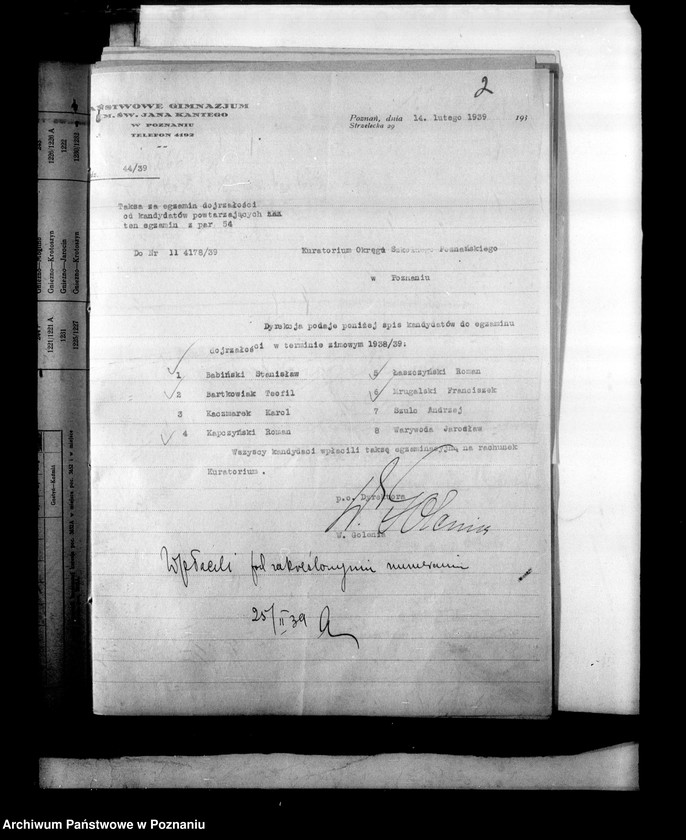 2
PAŃSTWOWE GIMNAZJUM
IM. ŚW. JANA KANTEGO
W POZNANIU
TELEFON 4192
Poznań, dnia 14. lutego 1939 193
Strzelecka 29
44/39
Taksa za egzamin dojrzałości
od kandydatów powtarzających
ten egzamin z par 54
Do Nr 11 4178/39
Kuratorium Okręgu Szkolnego Poznańskiego
w Poznaniu
Dyrekcja podaje poniżej spis kandydatów do egzaminu
dojrzałości w terminie zimowym 1938/39:
1 Babiński Stanisław 5 Łaszczyński Roman
2 Bartkowiak Teofil 6 Mrugalski Franciszek
3 Kaczmarek Karol 7 Szulc Andrzej
4 Kapczyński Roman 8 Warywoda Jarosław
Wszyscy kandydaci wpłacili taksę egzaminacyjną na rachunek
Kuratorium .
p.o. Dyrektora
W. Golenia
Wpłacili pod zakreślonymi numerami
25/II 39
1226/1226 A
1222
1221/1221 A
1231
1225/1227
Gniezno—Krotoszyn
Gniezno—Jarocin
Gniezno—Krotoszyn
Archiwum Państwowe w Poznaniu